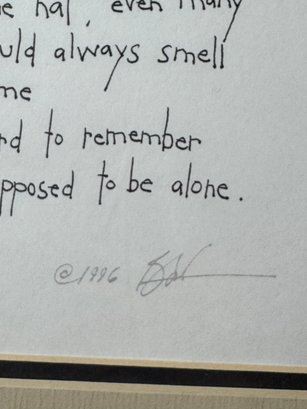 e hat, even many
uld always smell
me
rd to remember
pposed to be alone.
©1996